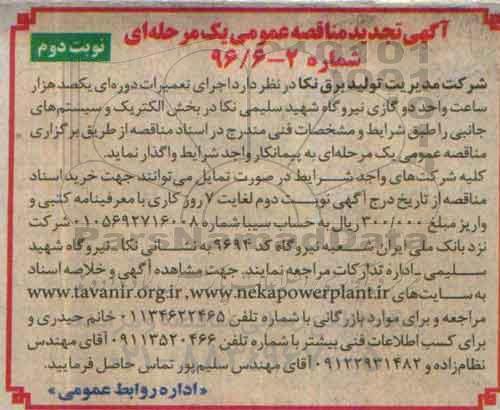 آگهی تجدید مناقصه عمومی یک مرحله‌ای
شماره ۲-۹۶/۶
نوبت دوم
شرکت مدیریت تولید برق نکا در نظر دارد اجرای تعمیرات دوره‌ای یکصد هزار
ساعت واحد دو گازی نیروگاه شهید سلیمی نکا در بخش الکتریک و سیستم‌های
جانبی را طبق شرایط و مشخصات فنی مندرج در اسناد مناقصه از طریق برگزاری
مناقصه عمومی یک مرحله‌ای به پیمانکار واجد شرایط واگذار نماید.
کلیه شرکت‌های واجد شرایط در صورت تمایل می‌توانند جهت خرید اسناد
مناقصه از تاریخ درج آگهی نوبت دوم لغایت ۷ روز کاری با معرفینامه کتبی و
واریز مبلغ ۳۰۰/۰۰۰ ریال به حساب سیبا شماره ۰۱۰۵۶۹۲۷۱۶۰۰۸ شرکت
نزد بانک ملی ایران شعبه نیروگاه کد ۹۶۹۴ به نشانی نکا - نیروگاه شهید
سلیمی - اداره تدارکات مراجعه نمایند. جهت مشاهده آگهی و خلاصه اسناد
به سایت‌های www.tavanir.org.ir ,www.nekapowerplant.ir
مراجعه و برای موارد بازرگانی با شماره تلفن ۰۱۱۳۴۶۲۲۴۶۵ خانم حیدری و
برای کسب اطلاعات فنی بیشتر با شماره تلفن ۰۹۱۱۳۵۲۰۴۶۶ آقای مهندس
نظام‌زاده و ۰۹۱۲۲۹۳۱۴۸۲ آقای مهندس سلیم‌پور تماس حاصل فرمایید.
«اداره روابط عمومی»